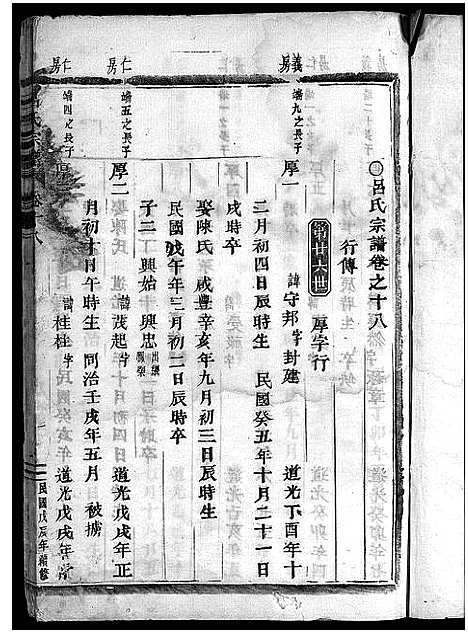 呂氏宗譜卷之十八
行傳
第廿六世 厚字行
義房
端九之長子
厚一 諱守邦字封建 道光丁酉年十
二月初四日辰時生 民國癸丑年十月二十一日
戌時卒
娶陳氏咸豐辛亥年九月初三日辰時生
民國戊午年三月初二日辰時卒
子二丁興始十興忠
仁房
端五之長子
厚二 諱茂起字 道光戊戌年正
月初十日午時生 同治壬戌年五月 被擄
仁房
端四之長子
諱桂桂字 道光戊戌年
民國戊辰年續修